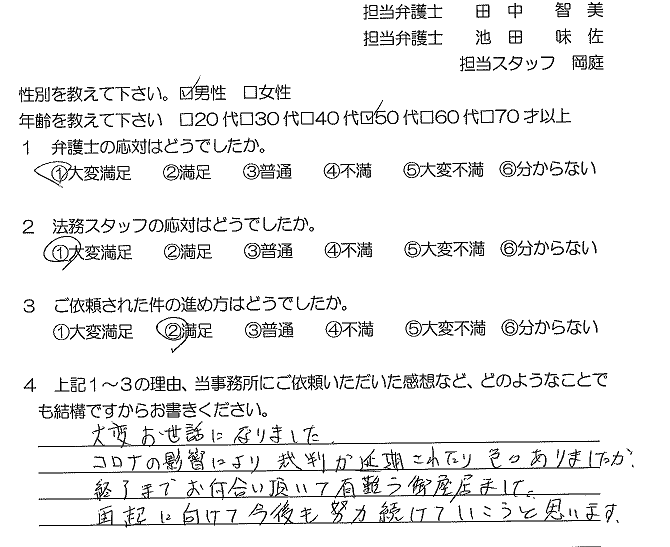 担当弁護士 田中 智美
担当弁護士 池田 味佐
担当スタッフ 岡庭
性別を教えて下さい。☑男性 □女性
年齢を教えて下さい □20代□30代□40代☑50代□60代□70才以上
1 弁護士の応対はどうでしたか。
①大変満足 ②満足 ③普通 ④不満 ⑤大変不満 ⑥分からない
2 法務スタッフの応対はどうでしたか。
①大変満足 ②満足 ③普通 ④不満 ⑤大変不満 ⑥分からない
3 ご依頼された件の進め方はどうでしたか。
①大変満足 ②満足 ③普通 ④不満 ⑤大変不満 ⑥分からない
4 上記1~3の理由、当事務所にご依頼いただいた感想など、どのようなことで
も結構ですからお書きください。
大変お世話になりました
コロナの影響により裁判が延期されたり色々ありましたが、
終了までお付合い頂いて有難う御座居ました。
再起に向けて今後も努力続けていこうと思います。